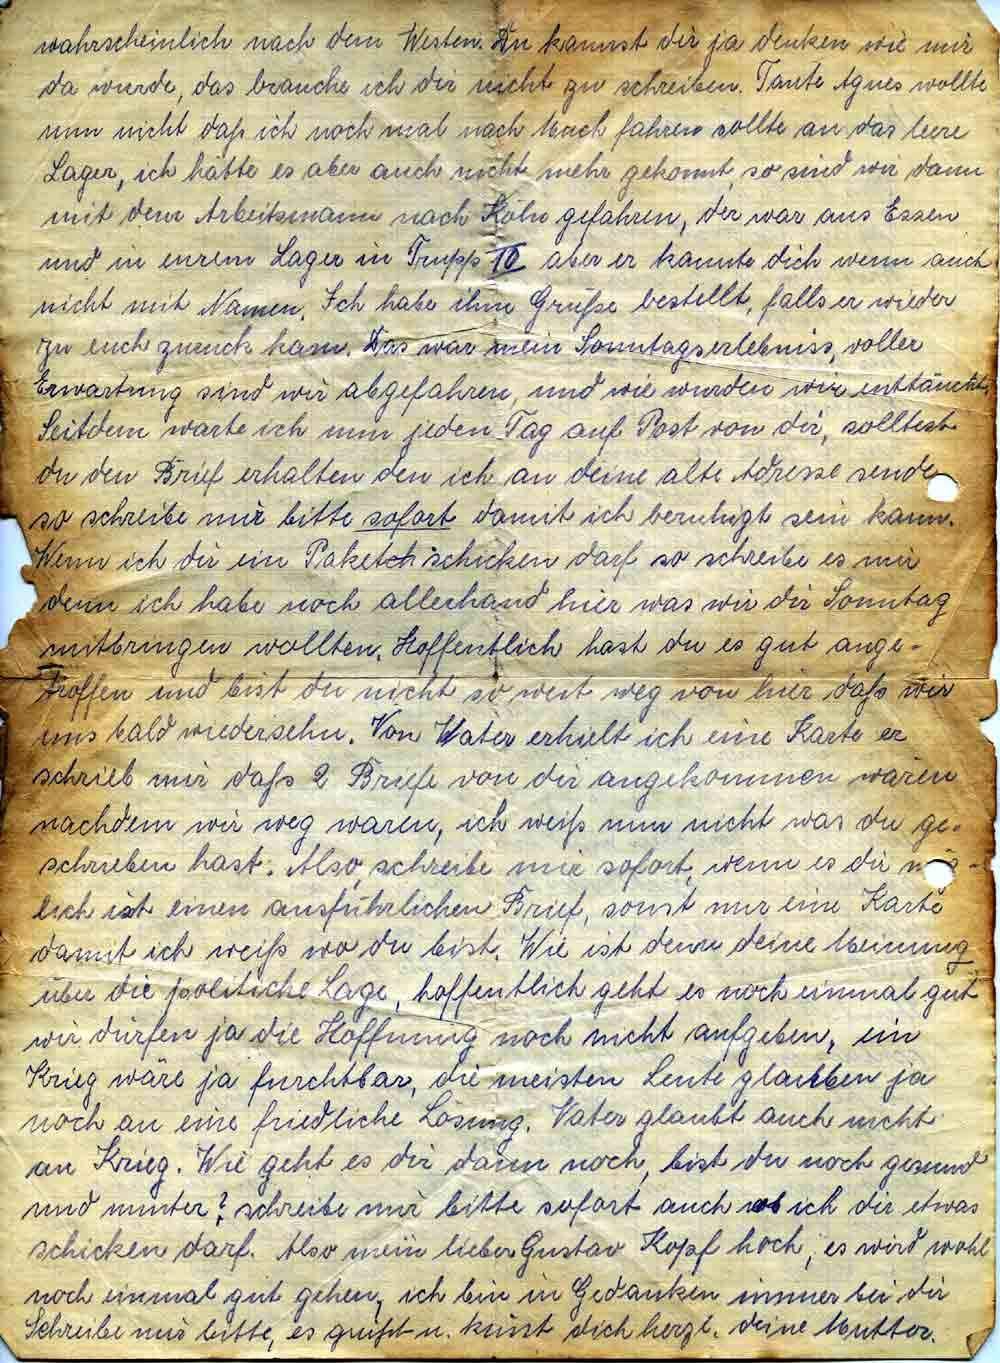 wahrscheinlich nach dem Westen. Du kannst dir ja denken wie mir
da wurde, das brauche ich dir nicht zu schreiben. Tante Agnes wollte
nun nicht daß ich noch mal nach Much fahren sollte an das leere
Lager, ich hätte es aber auch nicht mehr gekonnt, so sind wir dann
mit dem Arbeitsmann nach Köln gefahren, der war aus Essen
und in eurem Lager in Trupp 10 aber er kannte dich wenn auch
nicht mit Namen. Ich habe ihm Grüße bestellt, falls er wieder
zu euch zurück kam. Das war mein Sonntagserlebniss, voller
Erwartung sind wir abgefahren, und wie wurden wir enttäuscht.
Seitdem warte ich nun jeden Tag auf Post von dir, solltest
du den Brief erhalten den ich an deine alte Adresse sende
so schreibe mir bitte sofort damit ich beruhigt sein kann.
Wenn ich dir ein Paket schicken darf so schreibe es mir
denn ich habe noch allerhand hier was wir dir Sonntag
mitbringen wollten. Hoffentlich hast du es gut ange-
troffen und bist du nicht so weit weg von hier daß wir
uns bald wiedersehn. Von Vater erhielt ich eine Karte er
schrieb mir daß 2 Briefe von dir angekommen wären
nachdem wir weg waren, ich weiß nun nicht was du ge-
schrieben hast. Also, schreibe mir sofort, wenn es dir mög-
lich ist einen ausführlichen Brief, sonst nur eine Karte
damit ich weiß wo du bist. Wie ist denn deine Meinung
über die politiche Lage, hoffentlich geht es noch einmal gut
wir dürfen ja die Hoffnung noch nicht aufgeben, ein
Krieg wäre ja furchtbar, die meisten Leute glauben ja
noch an eine friedliche Lösung. Vater glaubt auch nicht
an Krieg. Wie geht es dir dann noch, bist du noch gesund
und munter? schreibe mir bitte sofort auch ob ich dir etwas
schicken darf. Also mein lieber Gustav Kopf hoch, es wird wohl
noch einmal gut gehen, ich bin in Gedanken immer bei dir
Schreibe mir bitte, es grüßt u. küßt dich herzl. deine Mutter.